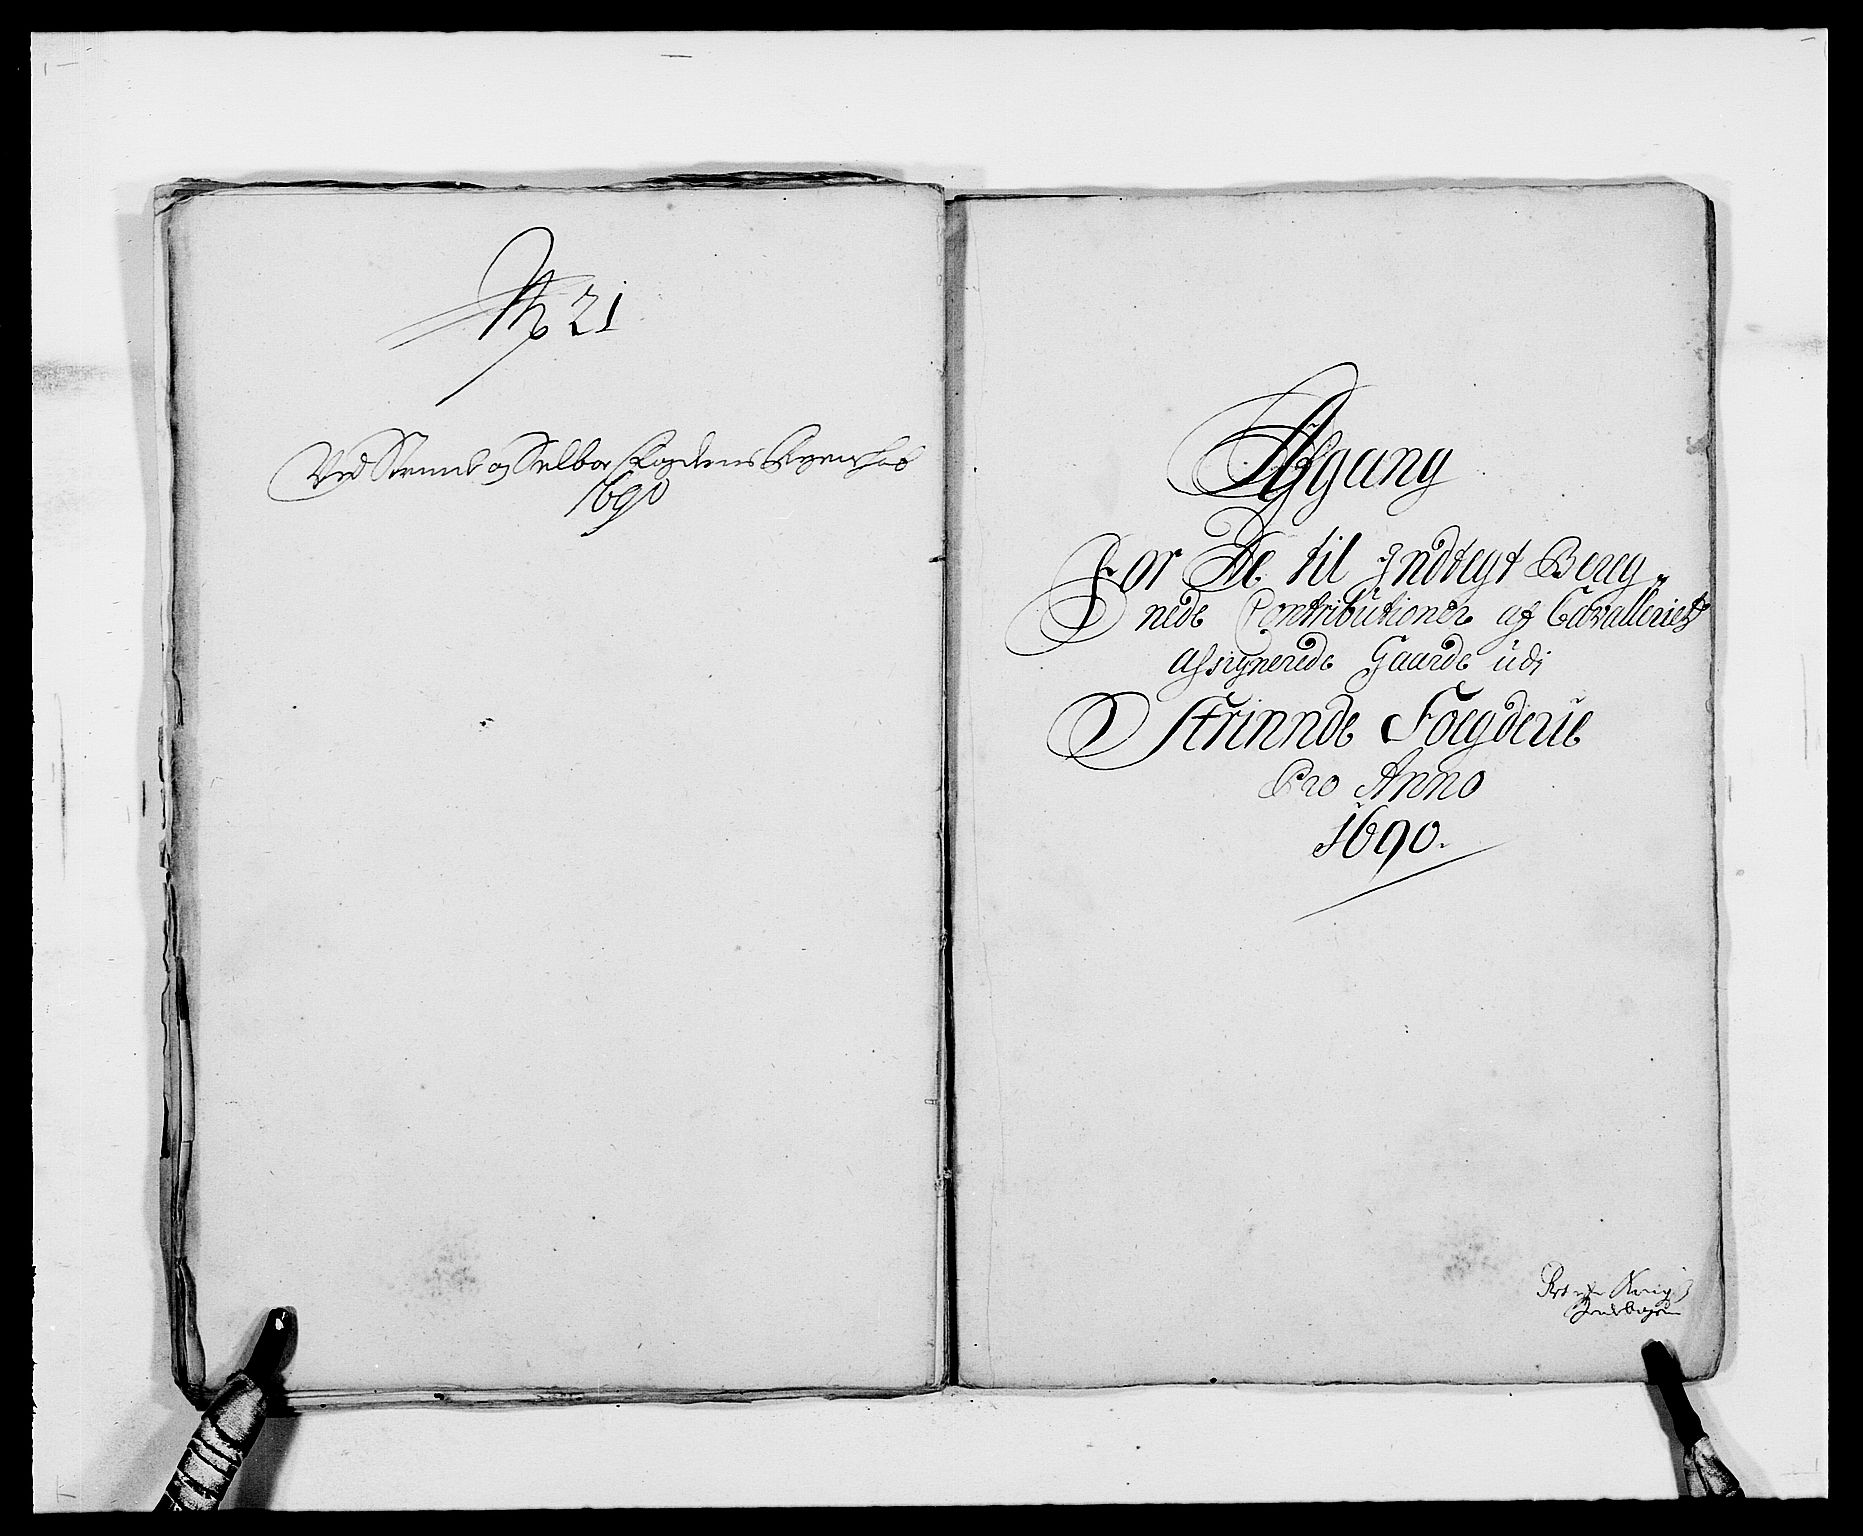 No 21
Ved Strinde og Selboe fogderies Regenskab
1690
Afgang
For De til Indtegt Bereg„
nede Contributioner af Cavalleriets
assignerede Gaarde udi
Strinnde Foegderie
Pro Anno
1690.